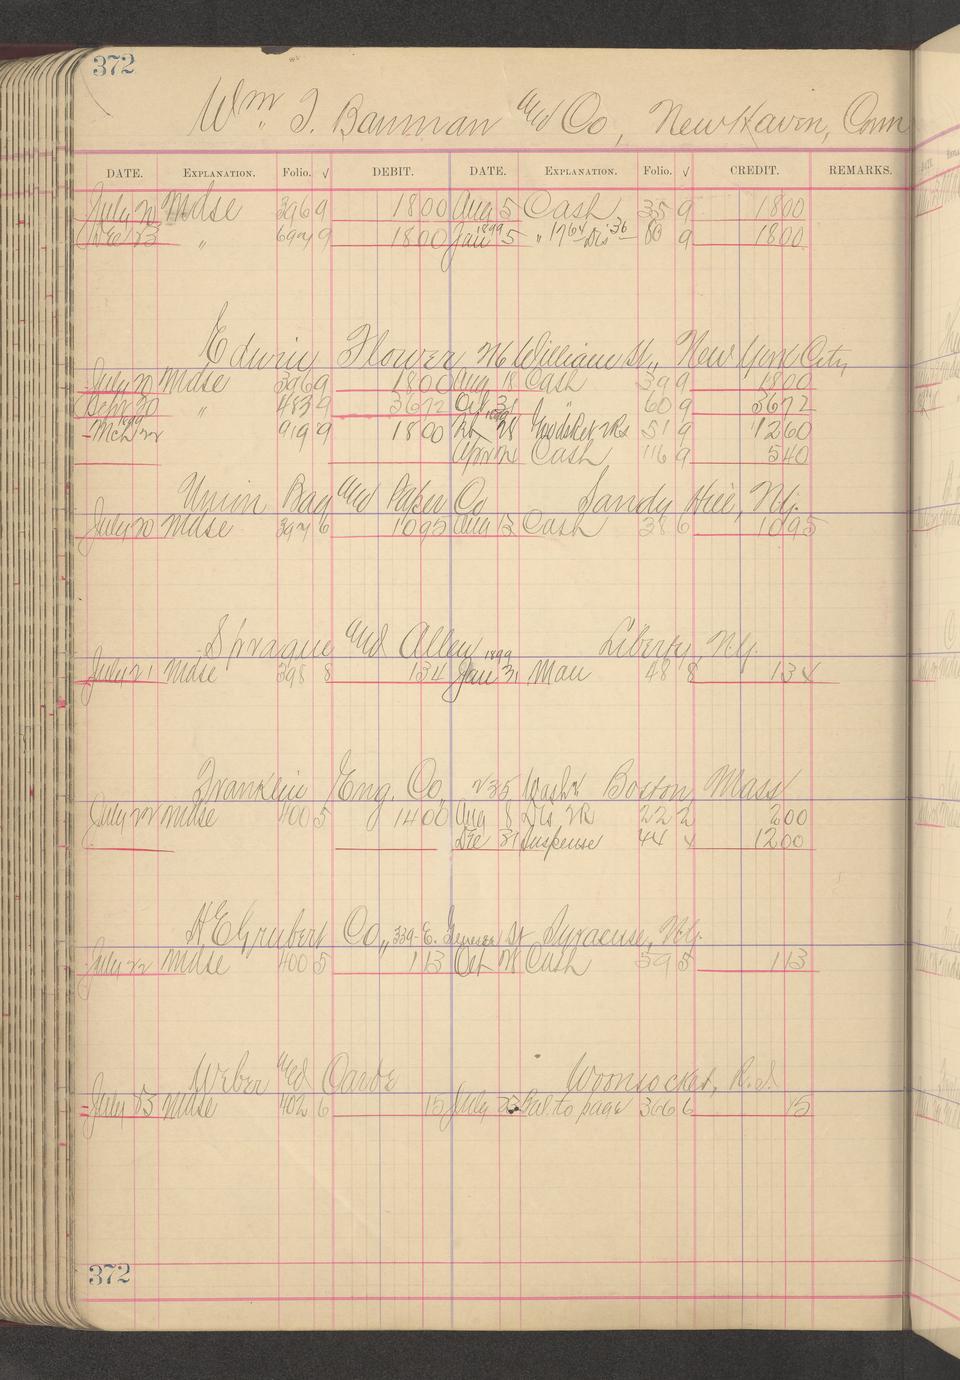 372
Wm. T. Bauman and Co, New Haven, Conn
DATE. EXPLANATION. Folio. √ DEBIT. DATE. EXPLANATION. Folio. √ CREDIT. REMARKS.
July 20 Mdse 396 9 1800 Aug 5 Cash 35 9 1800
1899
Dec 23 " 694 9 1800 Jan 5 " 1764 Dis 36 80 9 1800
Edwin Flower William St., New York City
July 20 Mdse 396 9 1800 Aug 18 Cash 39 9 1800
Sept 20 " 483 9 3672 Oct 31 " 60 9 3672
1899 1899
Mch 22 919 9 1800 28 51 9 1260
Apr 24 Cash 116 9 540
Union Bag and Paper Co Sandy Hill, Ny.
July 20 Mdse 394 6 1095 Aug 13 Cash 38 6 1095
Sprague and Allen Liberty, Ny.
1899
July 21 Mdse 398 8 134 Jan 31 Mau 48 8 134
Franklin Eng. Co, 235 Wash St Boston Mass
July 22 Mdse 400 5 1400 Aug 8 Dis 22 2 200
Dec 31 Suspense 44 4 1200
H E Grubert Co,, 339 E. Genesee St Syracuse, Ny.
July 22 Mdse 400 5 113 Oct 28 Cash 59 5 113
Weber and Carde Woonsocket, R.I.
July 23 Mdse 402 6 15 July 23 Bal. to page 366 6 15
372